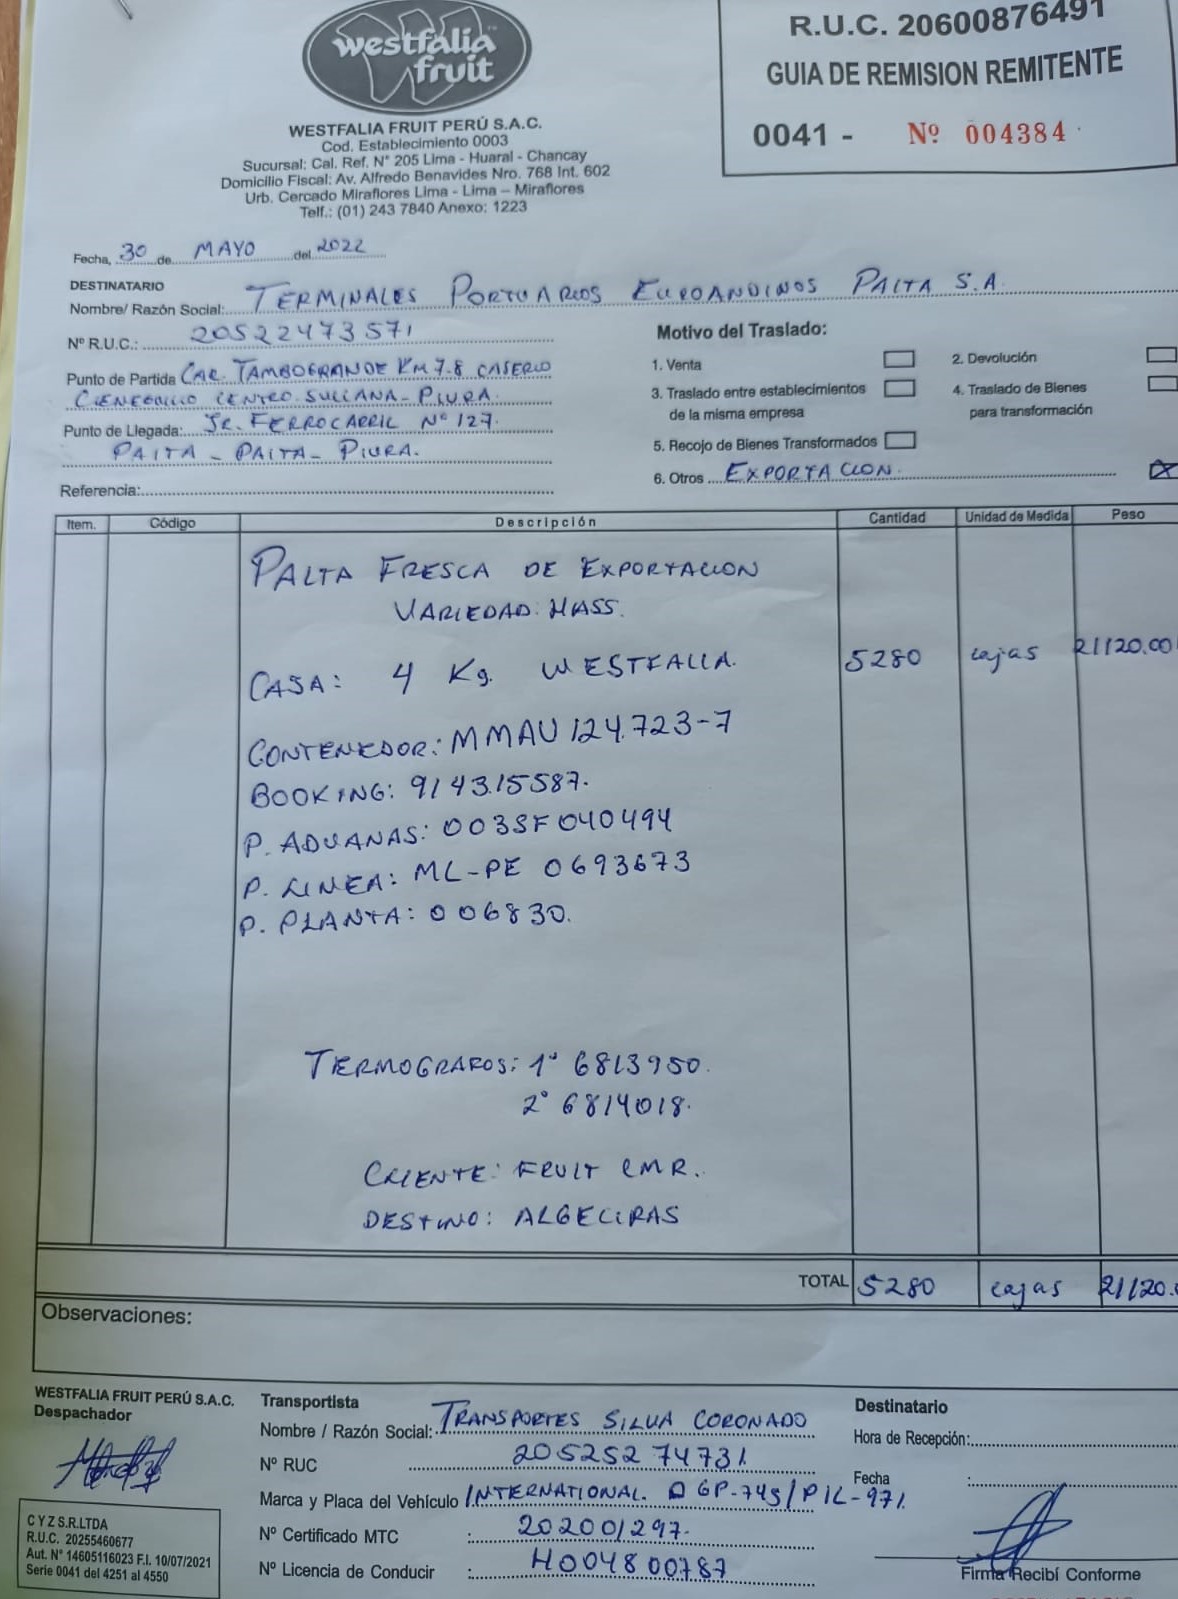 westfalia
fruit
WESTFALIA FRUIT PERÚ S.A.C.
Cod. Establecimiento 0003
Sucursal: Cal. Ref. N° 205 Lima - Huaral - Chancay
Domicilio Fiscal: Av. Alfredo Benavides Nro. 768 Int. 602
Urb. Cercado Miraflores Lima - Lima – Miraflores
Telf.: (01) 243 7840 Anexo: 1223
R.U.C. 20600876491
GUIA DE REMISION REMITENTE
0041 - Nº 004384
Fecha, 30 de MAYO del 2022
DESTINATARIO
Nombre/ Razón Social: TERMINALES PORTUARIOS EUROANDINOS PAITA S.A
Nº R.U.C.: 20522473571
Punto de Partida CAR. TAMBOGRANDE KM 7.8 CASERIO
CIENEGUILLO CENTRO SULLANA - PIURA.
Punto de Llegada: JR. FERROCARRIL Nº 127.
PAITA - PAITA - PIURA.
Referencia:
Motivo del Traslado:
1. Venta
2. Devolución
3. Traslado entre establecimientos
de la misma empresa
4. Traslado de Bienes
para transformación
5. Recojo de Bienes Transformados
6. Otros EXPORTACION. X
Item. Código Descripción Cantidad Unidad de Medida Peso
PALTA FRESCA DE EXPORTACION
VARIEDAD: HASS.
CAJA: 4 Kg. WESTFALIA. 5280 cajas 21120.00
CONTENEDOR: MMAU 124.723-7
BOOKING: 914315587.
P. ADUANAS: 003SF040494
P. LINEA: ML-PE 0693673
P. PLANTA: 006830.
TERMOGRAFOS: 1° 6813950.
2° 6814018.
CLIENTE: FRUIT CMR.
DESTINO: ALGECIRAS
TOTAL 5280 cajas 21120.
Observaciones:
WESTFALIA FRUIT PERÚ S.A.C.
Despachador
C Y Z S.R.LTDA
R.U.C. 20255460677
Aut. N° 14605116023 F.I. 10/07/2021
Serie 0041 del 4251 al 4550
Transportista
Nombre / Razón Social: TRANSPORTES SILVA CORONADO
Nº RUC 20525274731
Marca y Placa del Vehículo INTERNATIONAL. GP-745/PIL-971
Nº Certificado MTC : 202001297.
Nº Licencia de Conducir : H004800787
Destinatario
Hora de Recepción:
Fecha :
Firma Recibí Conforme